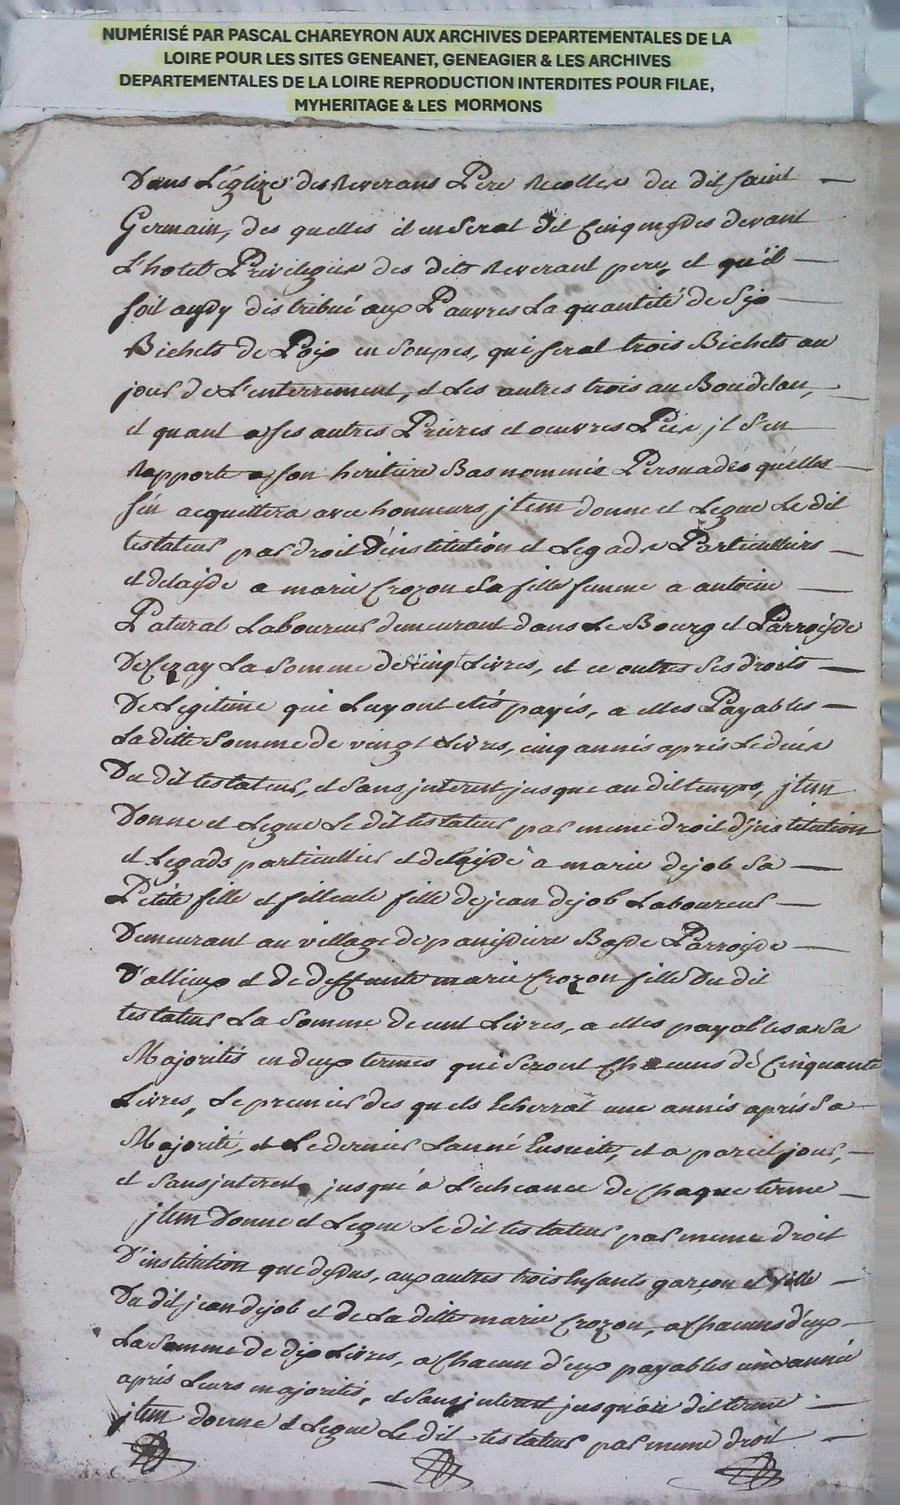 NUMÉRISÉ PAR PASCAL CHAREYRON AUX ARCHIVES DEPARTEMENTALES DE LA
LOIRE POUR LES SITES GENEANET, GENEAGIER & LES ARCHIVES
DEPARTEMENTALES DE LA LOIRE REPRODUCTION INTERDITES POUR FILAE,
MYHERITAGE & LES MORMONS
Dans L'églize des Reverans Pere Recollex du dit Saint
Germain, des quelles il en Serat dit Cinq devant
L'hotel Privilegiée des dits Reverant pere, et qu'il
soit distribué aux Pauvres La quantité de Six
Bichets de Poix en Soupes, qui Serat trois Bichets au
jour de L'enterrement, et Les autres trois au Boudelan,
et quant a ses autres Prieres et oeuvres Pies jl S'en
Rapporte a son heritiere Bas nommée Persuadés qu'elles
S'en acquittera avec honneurs jtem donne et Legue Le dit
testateur par droit d'institution et Legads Particulliers
et delaisse a marie Crozon Sa fille femme a antoine
Paturat Laboureur demeurant dans Le Bourg et Parroisse
De Cezay La Somme de vingt Livres, et ce outres Ses droits
De Legitime qui Luy ont etés payés, a elles Payables
La ditte Somme de vingt Livres, cinq années apres Le deces
Du dit testateur, et Sans jnterest jusque au dit temps, jtem
Donne et Legue Le dit testateur par meme droit d'jnstitution
et Legads particullier et delaisse a marie dejob Sa
Petite fille et filleule fille de jean dejob Laboureur
Demeurant au village de Basse Parroisse
D'allieux et de deffunte marie Crozon fille Du dit
testateur La Somme de cent Livres, a elles payables a Sa
Majorités en deux termes qui Seront Chacuns de Cinquante
Livres, Le premier des quels Echerrat une année aprés Sa
Majorité, et Le dernier L'anné Ensuite, et a pareil jour,
et Sans jnterest jusqu'a L'echeance de Chaque terme
jtem Donne et Legue Le dit testateur par meme droit
D'institution que dessus, aux autres trois Enfants garçon et fille
Du dit jean dejob et de La ditte marie Crozon, a Chacuns d'eux
La Somme de dix Livres, a Chacun d'eux payables une année
aprés Leurs majorités, et Sans jnterest jusqu'au dit terme
jtem donne et Legue Le dit testateur par meme droit